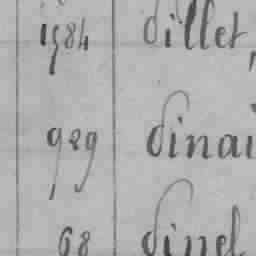 1584 dillet,
929 dinai
68 dinel